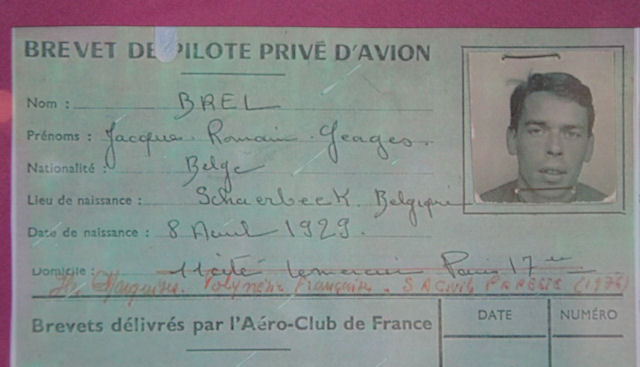 BREVET DE PILOTE PRIVÉ D'AVION
Nom : BREL
Prénoms : Jacques. Romain. Georges.
Nationalité : Belge
Lieu de naissance : Schaerbeek. Belgique
Date de naissance : 8 Avril 1929.
Domicile : 11 Cité Lemercier Paris 17
Marquises. Polynésie Française. (1976)
Brevets délivrés par l'Aéro-Club de France
DATE
NUMÉRO